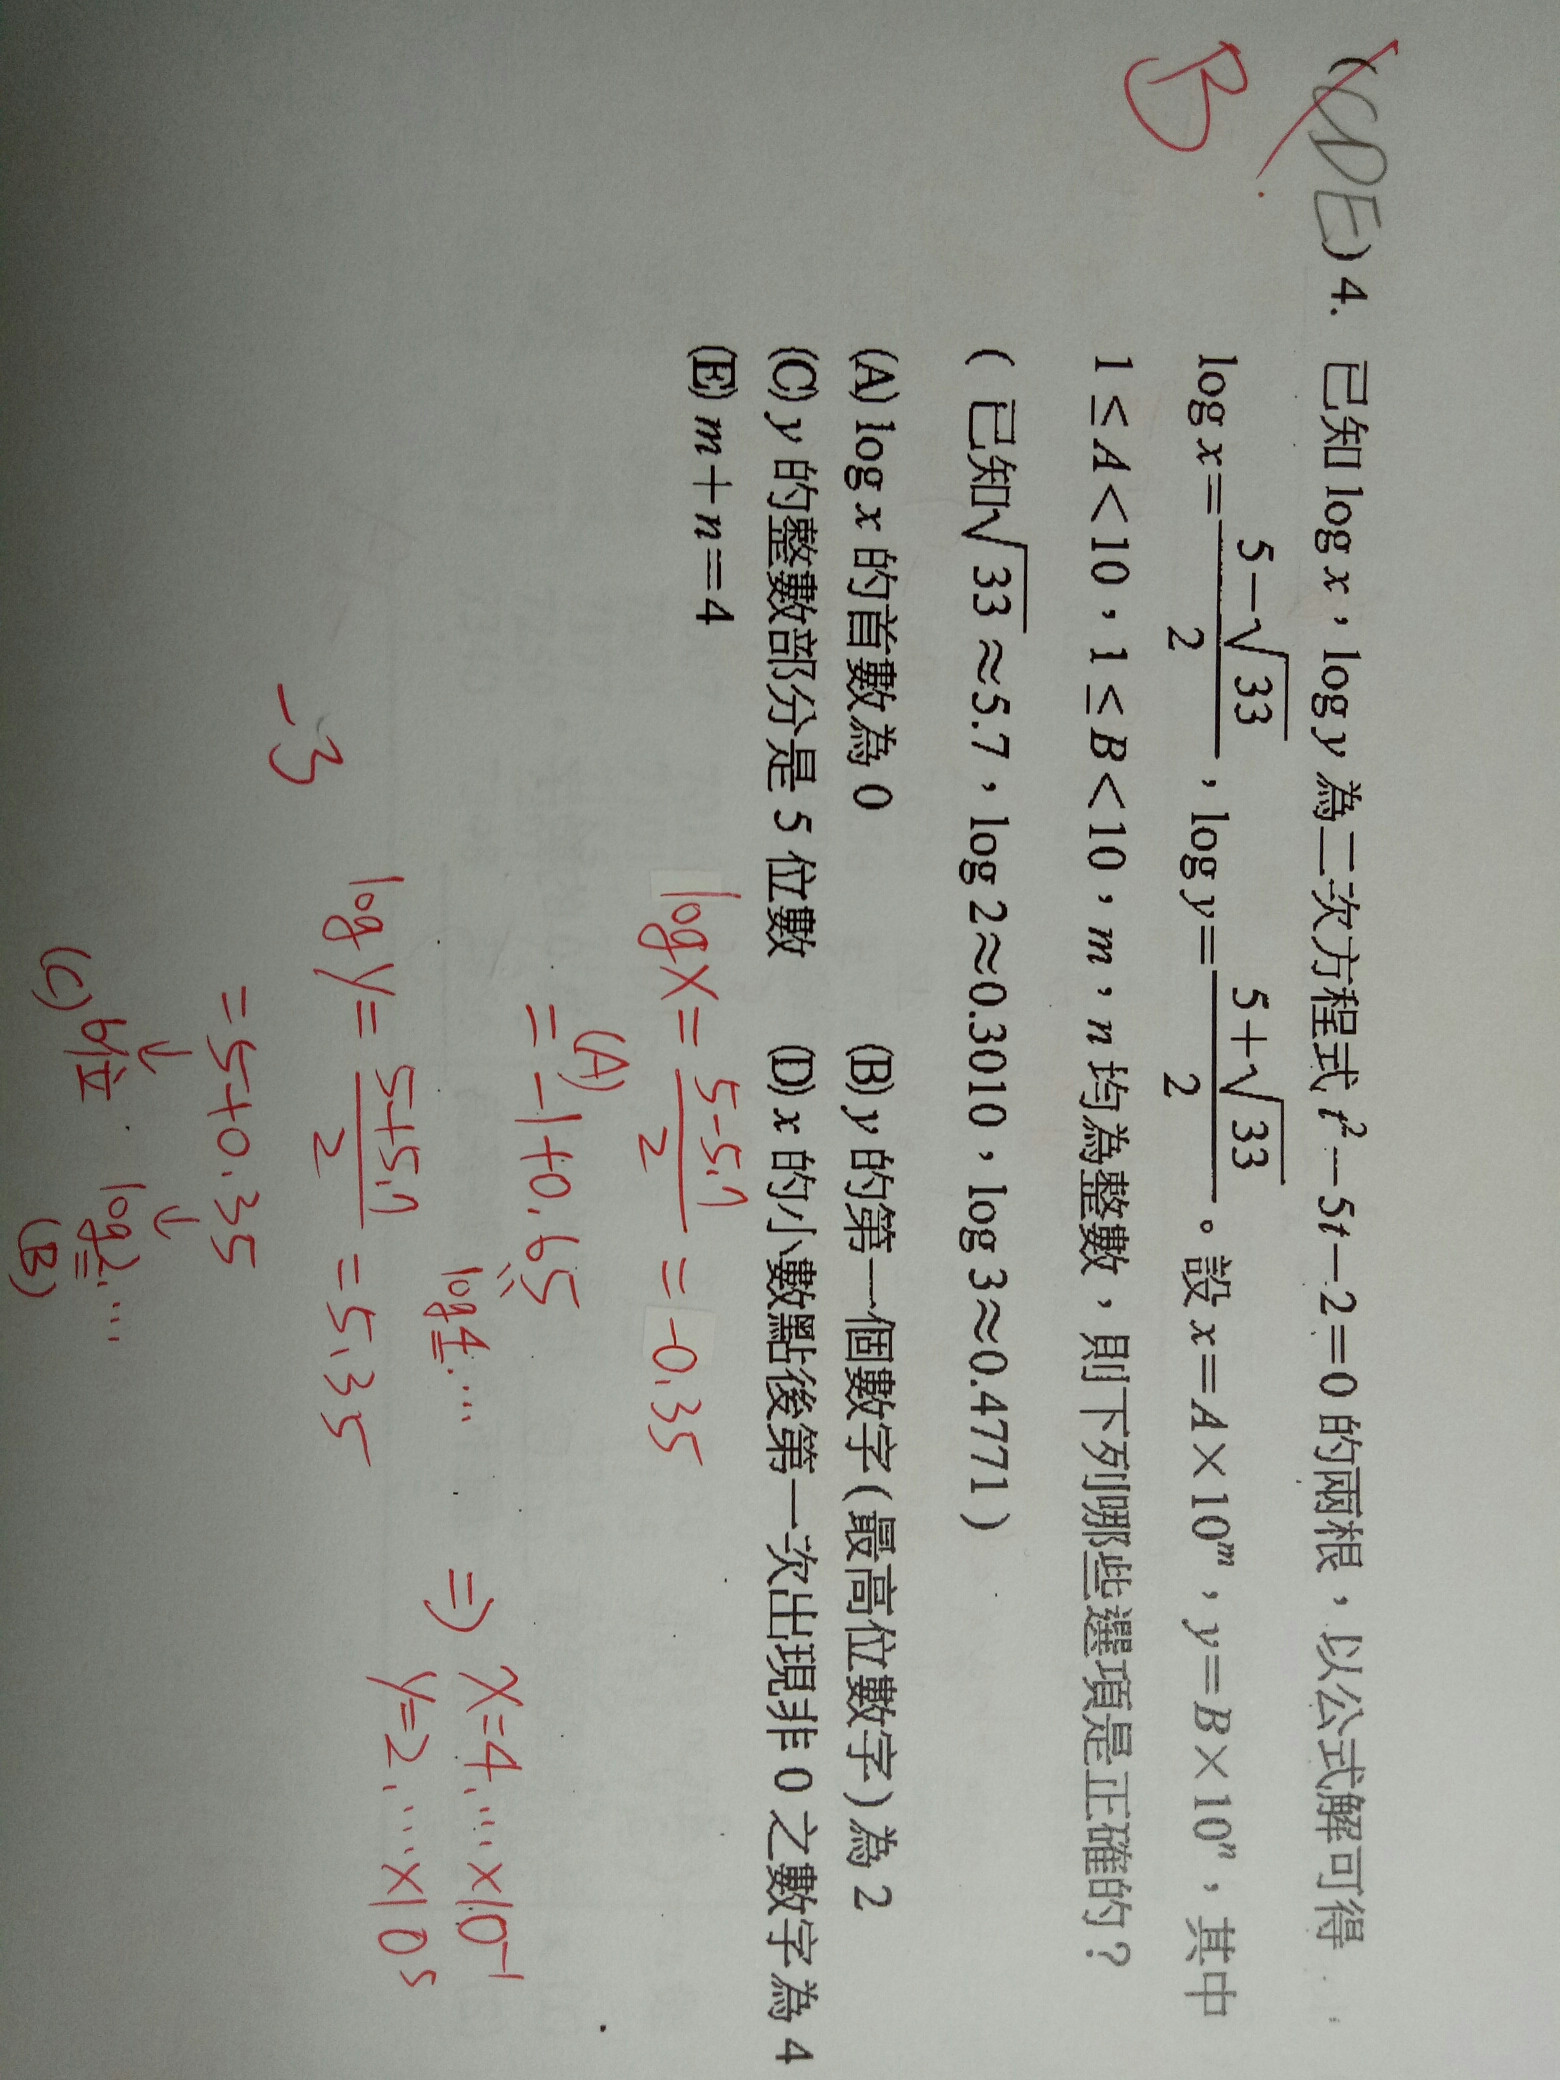 (CDE) 4. 已知 log x，log y 為二次方程式 t²－5t－2＝0 的兩根，以公式解可得
B
log x＝(5－√33)/2，log y＝(5＋√33)/2。設 x＝A×10ᵐ，y＝B×10ⁿ，其中
1≤A＜10，1≤B＜10，m，n 均為整數，則下列哪些選項是正確的？
(已知√33≈5.7，log 2≈0.3010，log 3≈0.4771)
(A) log x 的首數為 0 (B) y 的第一個數字(最高位數字)為 2
(C) y 的整數部分是 5 位數 (D) x 的小數點後第一次出現非 0 之數字為 4
(E) m＋n＝4
logx = (5-5.7)/2 = -0.35
(A)
= -1+0.65
log4.…
⇒ x=4.…×10⁻¹
y=2.…×10⁵
logy = (5+5.7)/2 = 5.35
-3
= 5+0.35
↓ ↓
(C) 6位 log2.…
(B)